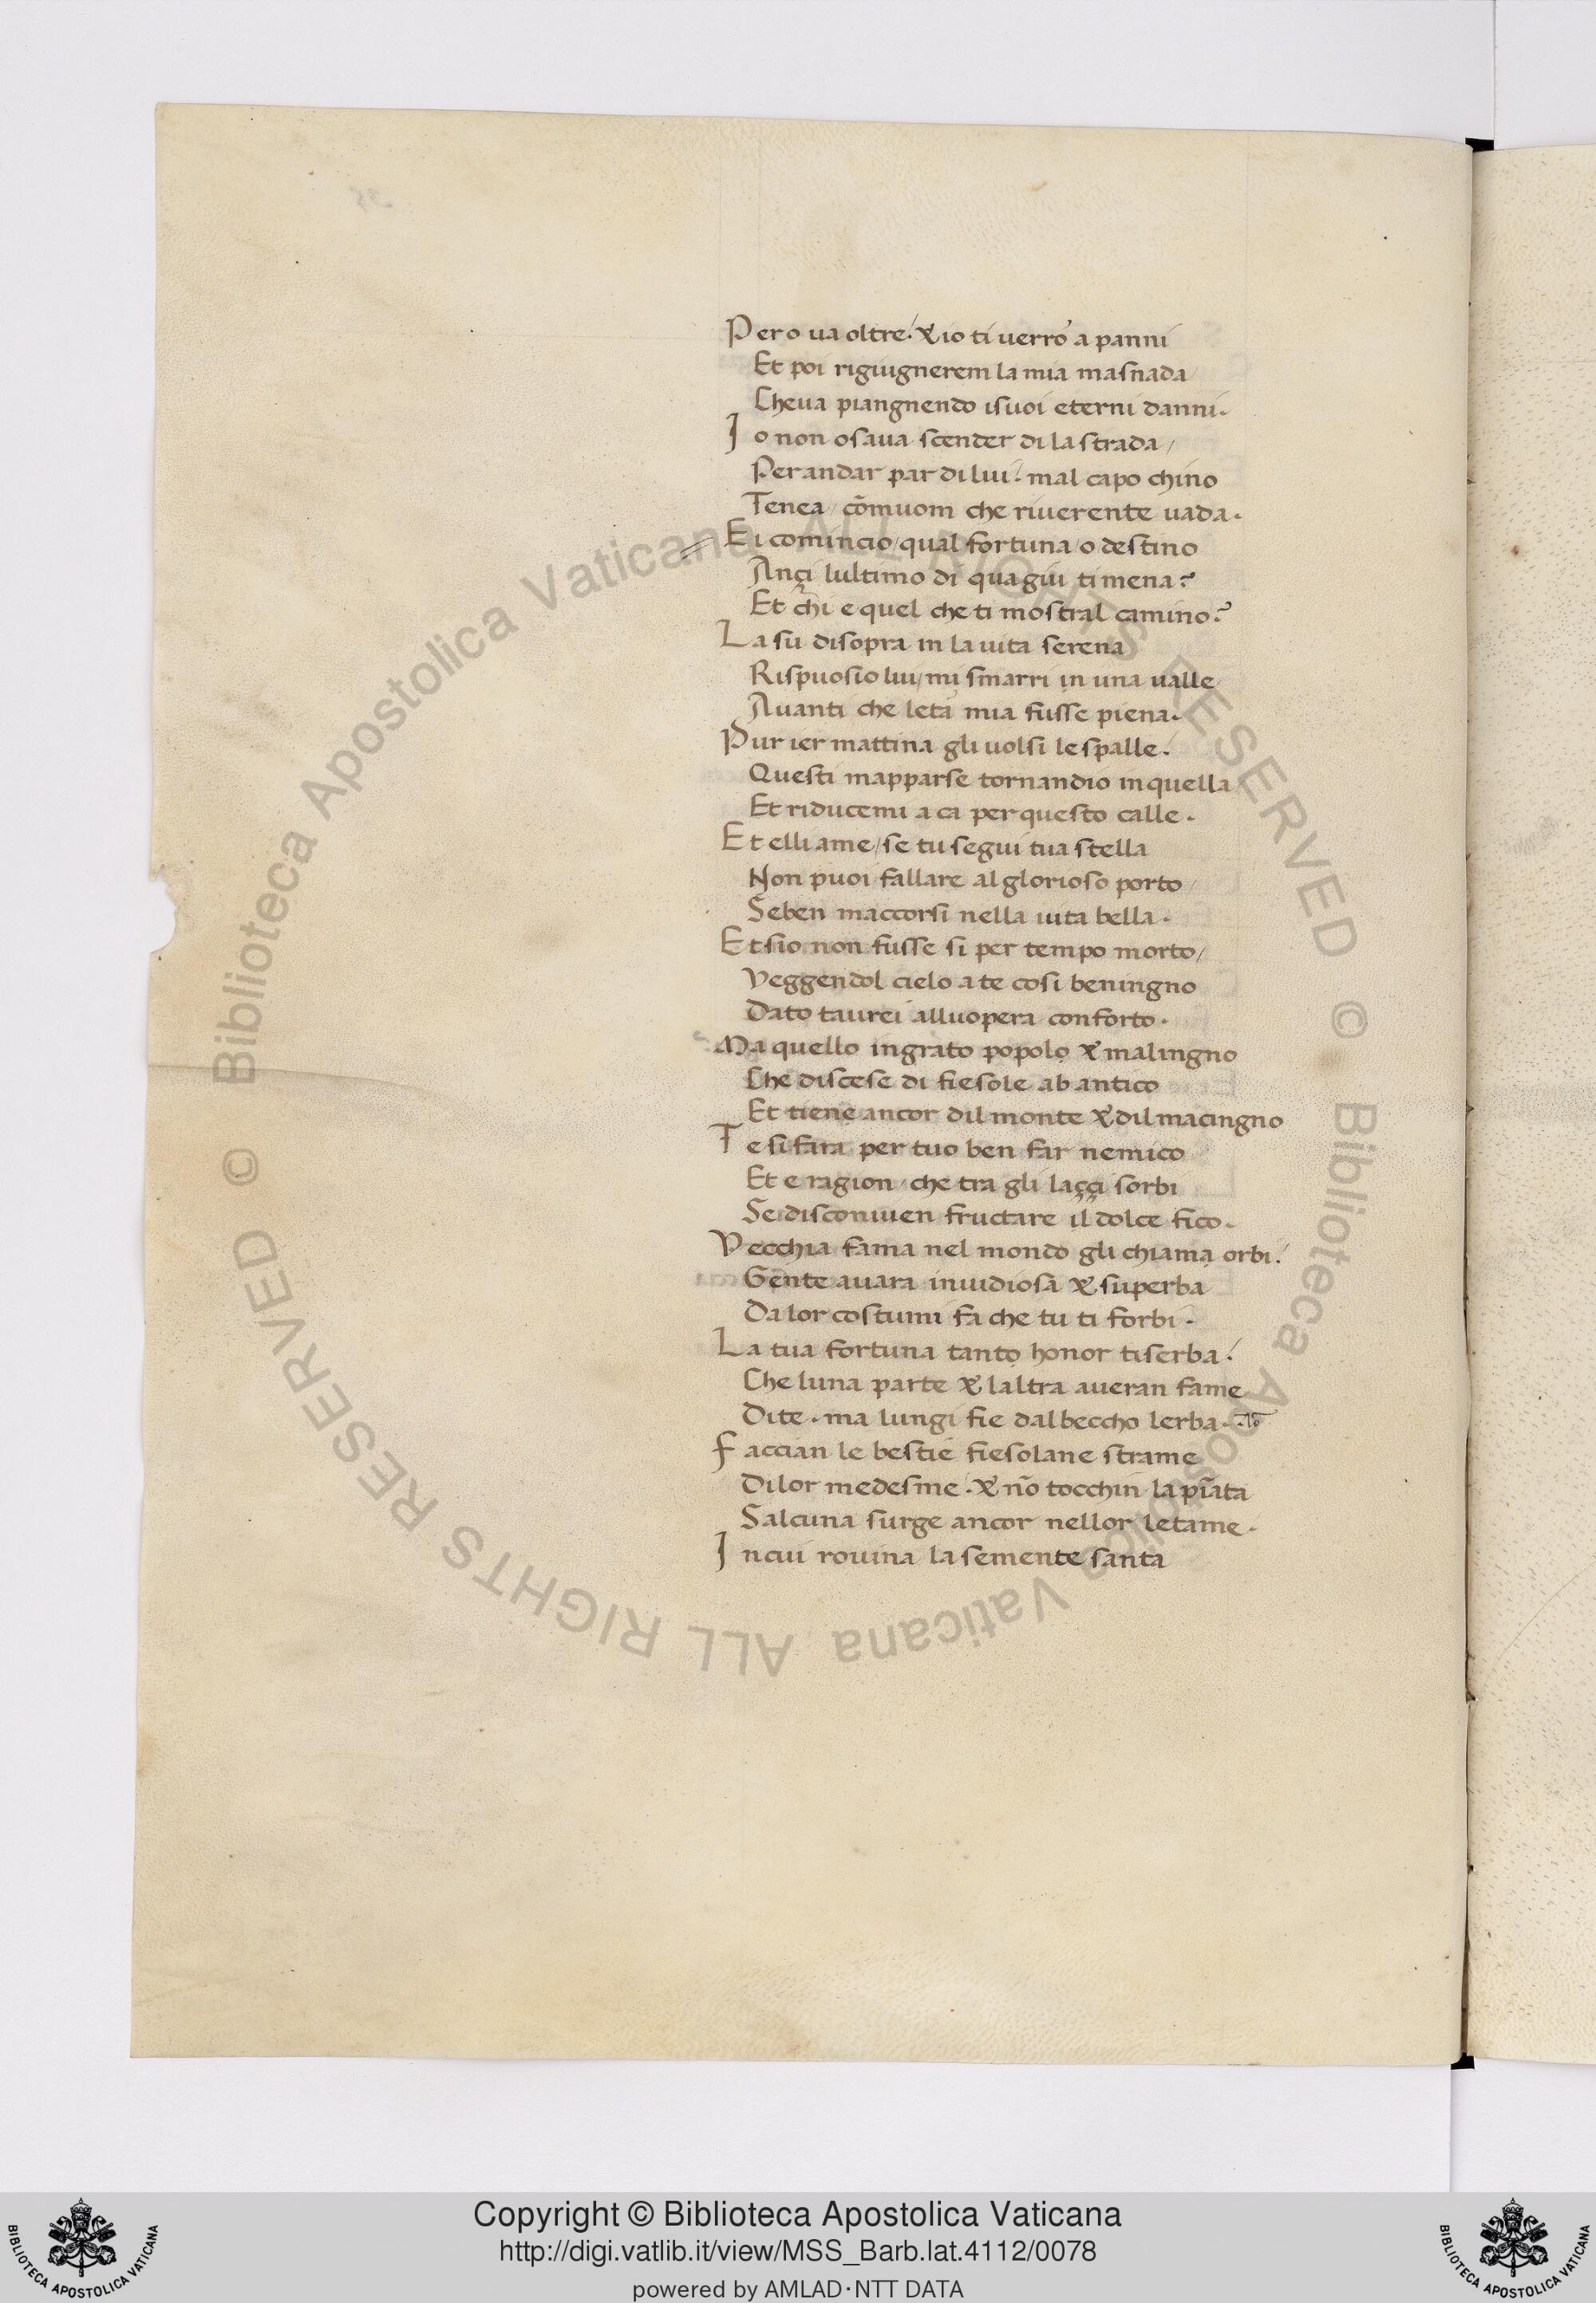 Pero ua oltre! & io ti uerro a panni
Et poi rigiugnerem la mia masnada
Cheua piangnendo isuoi eterni danni.
Io non osaua scender di la strada/
Per andar par di lui! mal capo chino
Tenea/ cōmuom che riuerente uada.
Ei comincio/ qual fortuna/ o destino
Ançi lultimo di qua giu ti mena?
Et chi e quel che ti mostral camino?
La su disopra in la uita serena
Rispuosio lui/ mi smarri in una ualle
Auanti che leta mia fusse piena.
Pur ier mattina gli uolsi le spalle!
Questi mapparse tornandio in quella
Et riducemi a ca per questo calle.
Et elli ame/ se tu segui tua stella
Non puoi fallare al glorioso porto/
Seben maccorsi nella uita bella.
Et sio non fusse si per tempo morto/
Veggendol cielo a te cosi beningno
Dato taurei alluopera conforto.
Ma quello ingrato popolo & malingno
Che discese di fiesole ab antico
Et tiene ancor dil monte & dil macingno
Te si fara per tuo ben far nemico
Et e ragion/ che tra gli laççi sorbi
Se disconuien fructare il dolce fico.
Vecchia fama nel mondo gli chiama orbi!
Gente auara inuidiosa & superba
Da lor costumi fa che tu ti forbi.
La tua fortuna tanto honor tiserba!
Che luna parte & laltra aueran fame
Dite. ma lungi fie dal beccho lerba.
Faccian le bestie fiesolane strame
Dilor medesme. & nō tocchin la piāta
Salcuna surge ancor nellor letame.
In cui rouina la semente santa
© Biblioteca Apostolica Vaticana ALL RIGHTS RESERVED © Biblioteca Apostolica Vaticana ALL RIGHTS RESERVED
Copyright © Biblioteca Apostolica Vaticana
http://digi.vatlib.it/view/MSS_Barb.lat.4112/0078
powered by AMLAD·NTT DATA
BIBLIOTECA APOSTOLICA VATICANA
BIBLIOTECA APOSTOLICA VATICANA